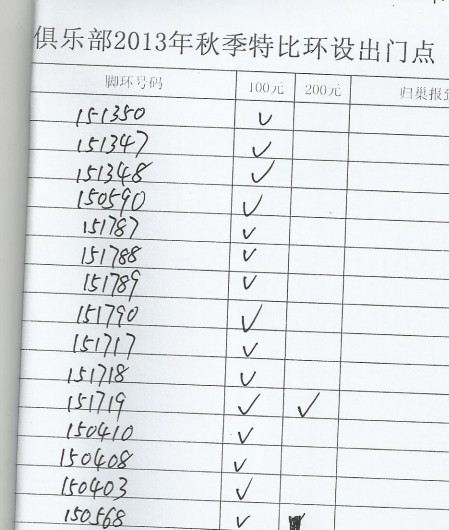 俱乐部2013年秋季特比环设出门点
脚环号码 100元 200元 归巢报
151350 ✓
151347 ✓
151348 ✓
150590 ✓
151787 ✓
151788 ✓
151789 ✓
151790 ✓
151717 ✓
151718 ✓
151719 ✓ ✓
150410 ✓
150408 ✓
150403 ✓
150568 ✓